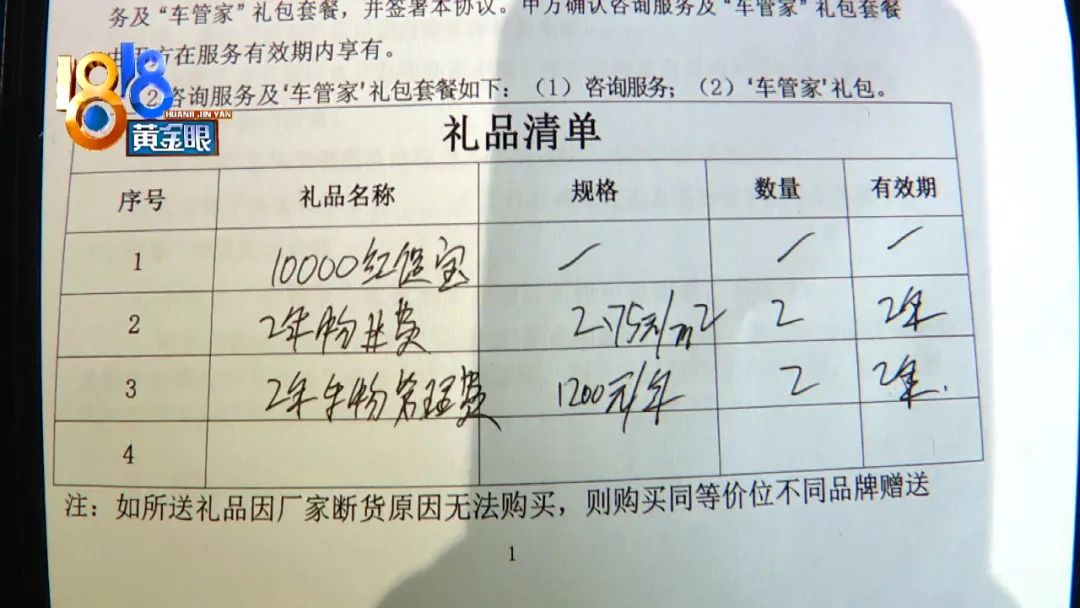 务及“车管家”礼包套餐，并签署本协议。甲方确认咨询服务及“车管家”礼包套餐
方在服务有效期内享有。
（2）咨询服务及‘车管家’礼包套餐如下：（1）咨询服务；（2）‘车管家’礼包。
1818
HUANG JIN YAN
黄金眼
礼品清单
序号 礼品名称 规格 数量 有效期
1 10000红包宝 / / /
2 2年物业费 2.75元/m2 2 2年
3 2年车物管理费 1200元/年 2 2年.
4
注：如所送礼品因厂家断货原因无法购买，则购买同等价位不同品牌赠送
1